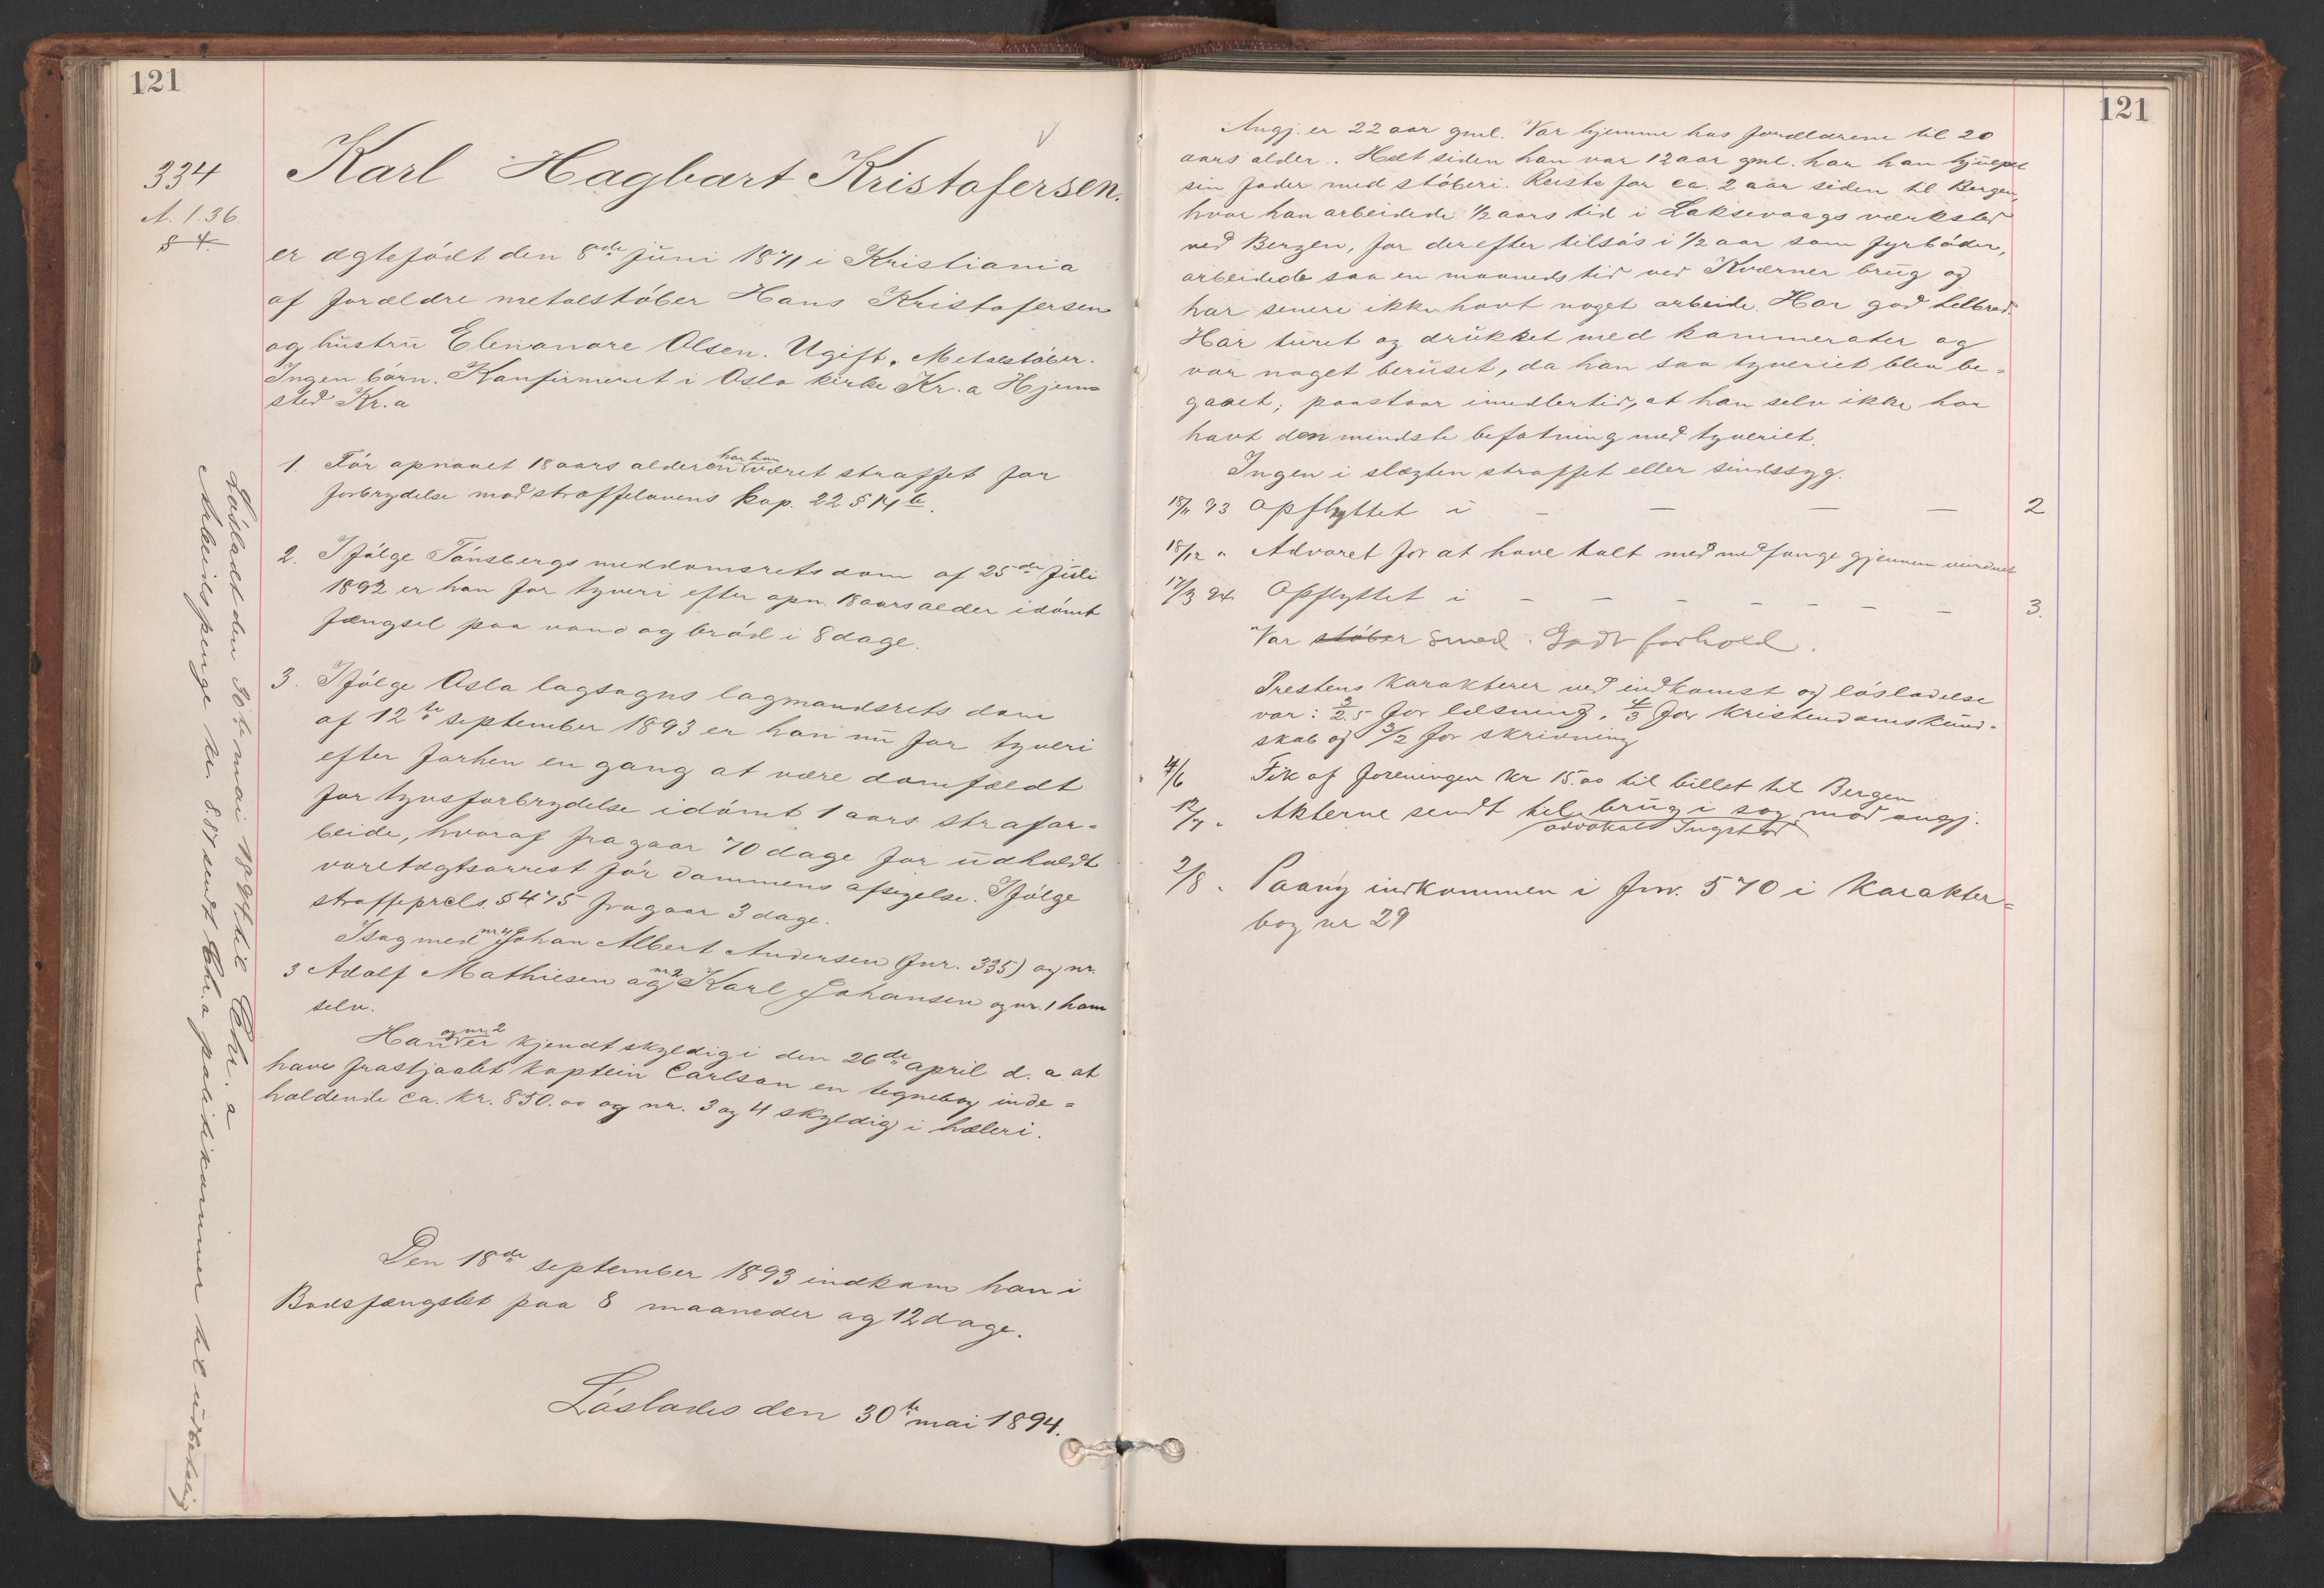 121
334
A. 1.36.
§ 4.
Karl Hagbart Kristofersen.
er ægtefödt den 8de juni 1871 i Kristiania
af forældre metalstöber Hans Kristofersen
og hustru Elenanore Olsen. Ugift. Metalstöber.
Ingen börn. Konfirmeret i Oslo kirke Kr.a Hjem-
sted Kr.a
1. För opnaaet 18 aars alderen har han været straffet for
forbrydelse mod straffelovens kap. 22 § 14 b.
2. Ifölge Tönsbergs meddomsrets dom af 25de juli
1892 er han for tyveri efter opn. 18 aars alder idömt
fængsel paa vand og bröd i 8 dage.
3. Ifölge Oslo lagsogns lagmandsrets dom
af 12te september 1893 er han nu for tyveri
efter forhen en gang at være domfældt
for tyvsforbrydelse idömt 1 aars strafar-
beide, hvoraf fragaar 70 dage for udholdt
varetægtsarrest för dommens afsigelse. Ifölge
straffeprcls. § 475 fragaar 3 dage.
I sag med nr. 4 Johan Albert Andersen (fnr. 335) og nr.
3 Adolf Mathiesen og nr. 2 Karl Johansen og nr. 1 ham
selv.
Han og nr. 2 er kjendt skyldig i den 26de april d. a. at
have frastjaalet kaptein Carlson en tegnebog inde-
holdende ca. kr. 850.00 og nr. 3 og 4 skyldig i hæleri.
Den 18de september 1893 indkom han i
Bodsfængslet paa 8 maaneder og 12 dage.
Löslades den 30te mai 1894.
Lösladt den 30te mai 1894 til Chr.a
Arbeidspenge kr. 8.87 sendt Chr.a politikammer til udbetaling
121
Angj. er 22 aar gml. Var hjemme hos forældrene til 20
aars alder. Helt siden han var 12 aar gml. har han hjulpet
sin fader med stöberi. Reiste for ca. 2 aar siden til Bergen,
hvor han arbeidede 1/2 aars tid i Laksevaags værksted
ved Bergen, for derefter tilsös i 1/2 aar som fyrböder,
arbeidede saa en maaneds tid ved Kværner brug og
har senere ikke havt noget arbeide. Har god helbred.
Har turet og drukket med kammerater og
var noget beruset, da han saa tyveriet blev be-
gaaet; paastaar imidlertid, at han selv ikke har
havt den mindste befatning med tyveriet.
Ingen i slægten straffet eller sindssyg.
18/11 93 Opflyttet i – – – – 2
18/12 " Advaret for at have talt med medfange gjennem vinduet
17/3 94 Opflyttet i – – – – – – – 3.
Var stöber smed. Godt forhold.
Prestens karakterer ved indkomst og lösladelse
var: 2/2.5 for læsning, 4/3 for kristendomskund-
skab og 3/2 for skrivning
4/6 Fik af foreningen kr 15.00 til billet til Bergen
12/7 " Akterne sendt til brug i sag mod angj.
advokat Ingstad
2/8 " Paany indkommen i fnr. 570 i karakter-
bog nr 29